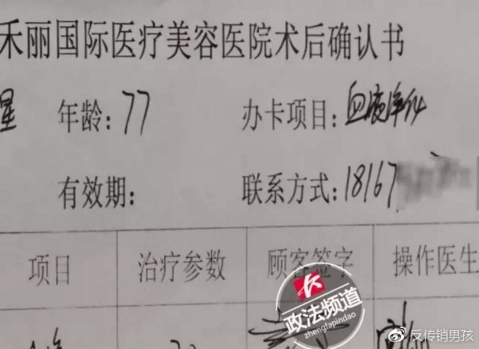 禾丽国际医疗美容医院术后确认书
星 年龄:77 办卡项目:血液净化
有效期: 联系方式:18167
项目 治疗参数 顾客签字 操作医生
政法频道
zhengfapindao
@反传销男孩